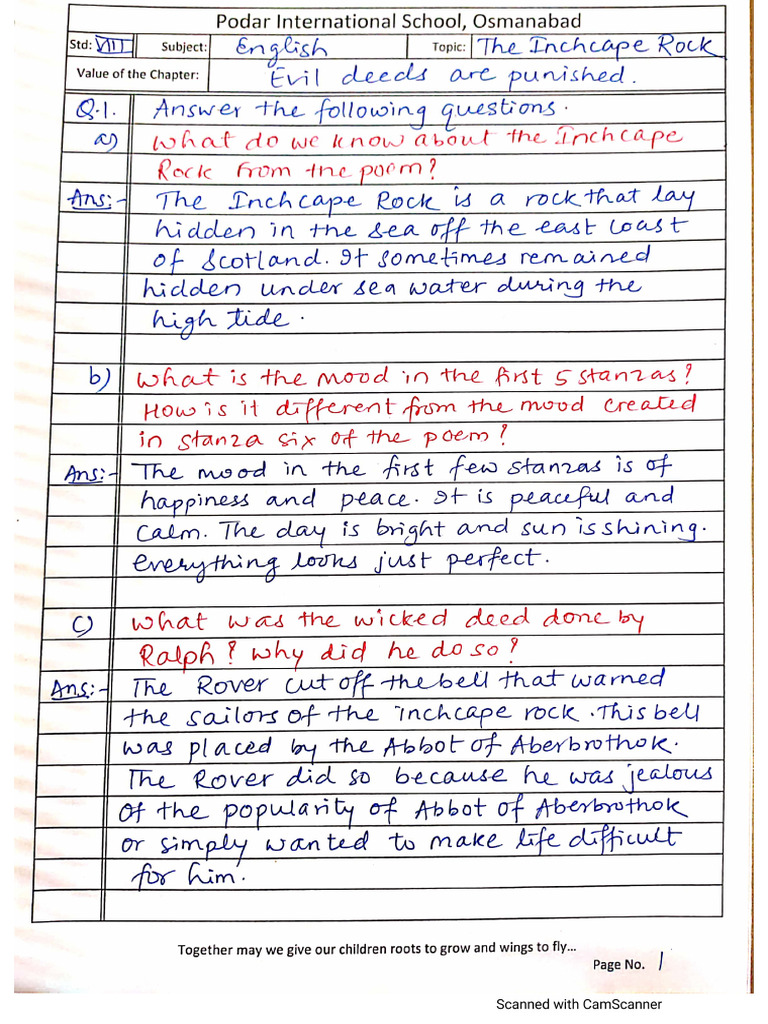 Podar International School, Osmanabad
Std: VIII Subject: English Topic: The Inchcape Rock
Value of the Chapter: Evil deeds are punished.
Q.1. Answer the following questions.
a) What do we know about the Inchcape
Rock from the poem?
Ans:- The Inchcape Rock is a rock that lay
hidden in the sea off the east coast
of Scotland. It sometimes remained
hidden under sea water during the
high tide.
b) What is the mood in the first 5 stanzas?
How is it different from the mood created
in stanza six of the poem?
Ans:- The mood in the first few stanzas is of
happiness and peace. It is peaceful and
calm. The day is bright and sun is shining.
everything looks just perfect.
c) What was the wicked deed done by
Ralph? Why did he do so?
Ans:- The Rover cut off the bell that warned
the sailors of the inchcape rock. This bell
was placed by the Abbot of Aberbrothok.
The Rover did so because he was jealous
of the popularity of Abbot of Aberbrothok
or simply wanted to make life difficult
for him.
Together may we give our children roots to grow and wings to fly...
Page No. 1
Scanned with CamScanner